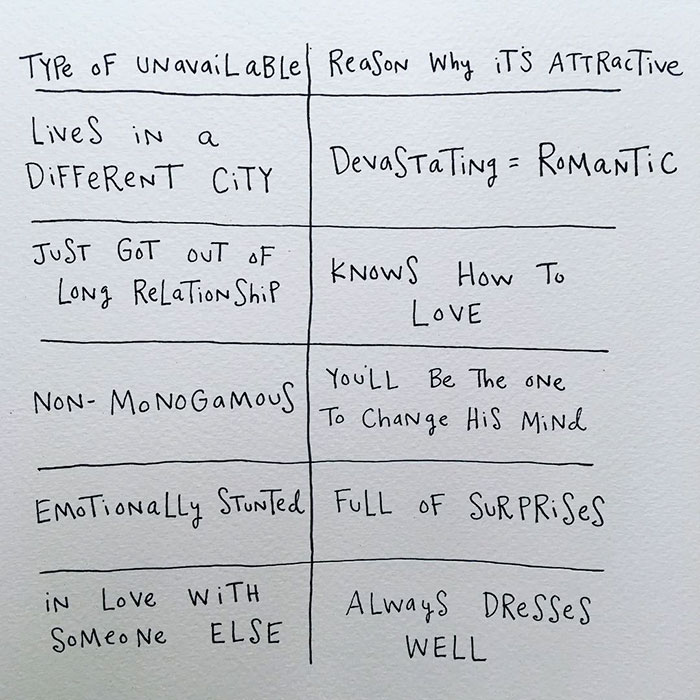 Type of unavailable
Reason why it's attractive
Lives in a
different city
Devastating = Romantic
Just got out of
long relationship
Knows how to
love
Non-monogamous
You'll be the one
to change his mind
Emotionally stunted
Full of surprises
in love with
someone else
Always dresses
well